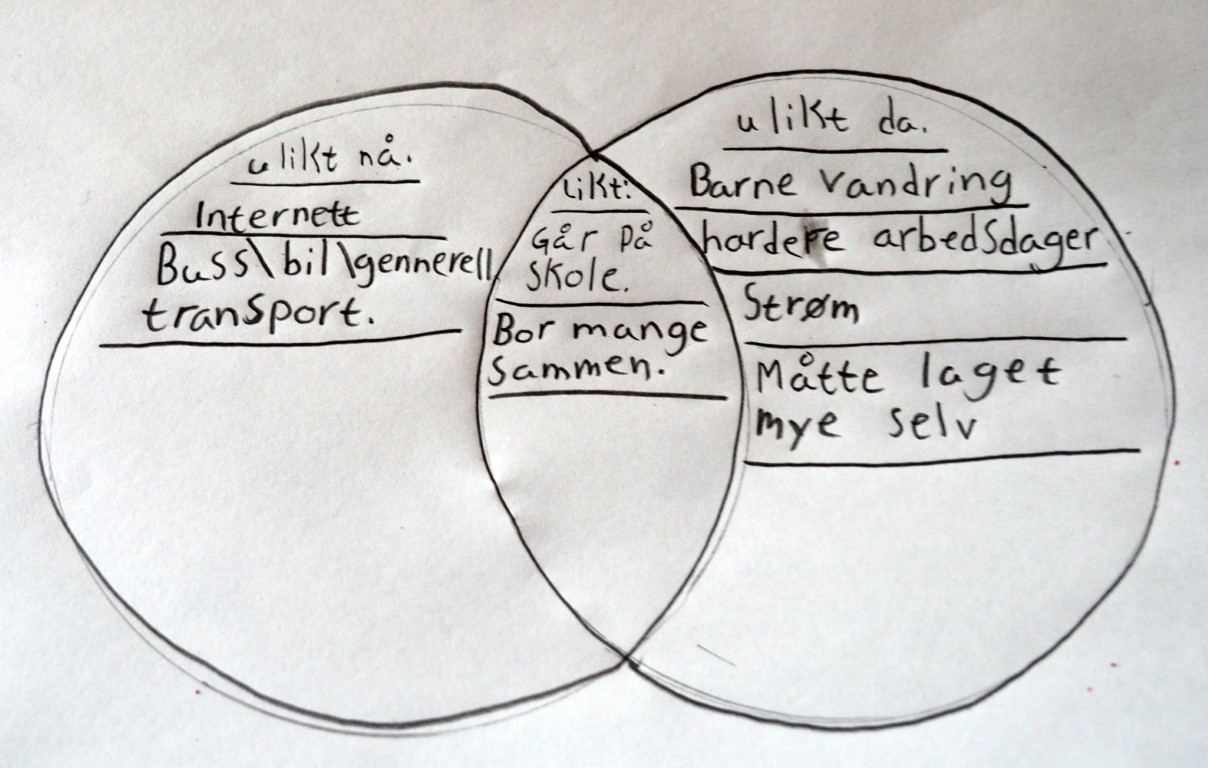 ulikt nå.
Internett
Buss\bil\gennerell
transport.
Likt:
Går på
skole.
Bor mange
sammen.
ulikt da.
Barne vandring
hardere arbedsdager
Strøm
Måtte laget
mye selv